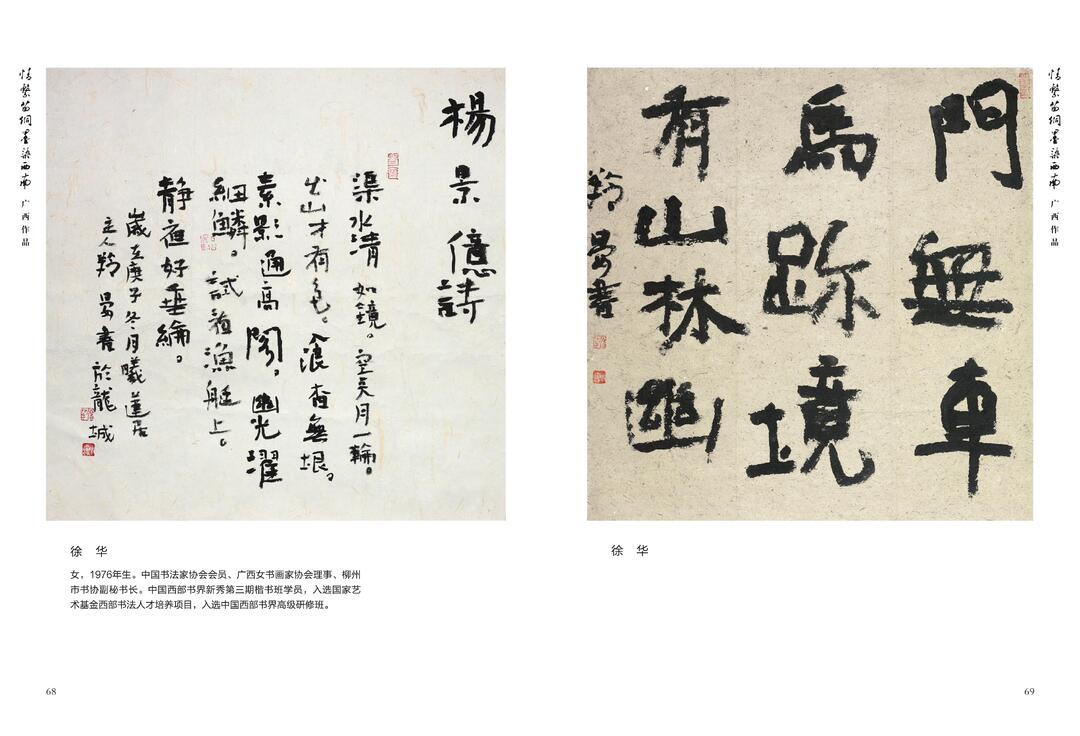 情繫苗侗墨染西南 广西作品
楊景億詩
渠水清如鏡。空天月一輪。
出山才有色。入浪杳無垠。
素影通高閣。幽光躍
細鱗。試 漁艇上。
靜應好垂綸。
歲在庚子冬月曦蓮居
主人羚曼書於龍城
徐 华
女，1976年生。中国书法家协会会员、广西女书画家协会理事、柳州
市书协副秘书长。中国西部书界新秀第三期楷书班学员，入选国家艺
术基金西部书法人才培养项目，入选中国西部书界高级研修班。
68
情繫苗侗墨染西南 广西作品
門無車
馬跡境
有山林幽
羚曼書
徐 华
69